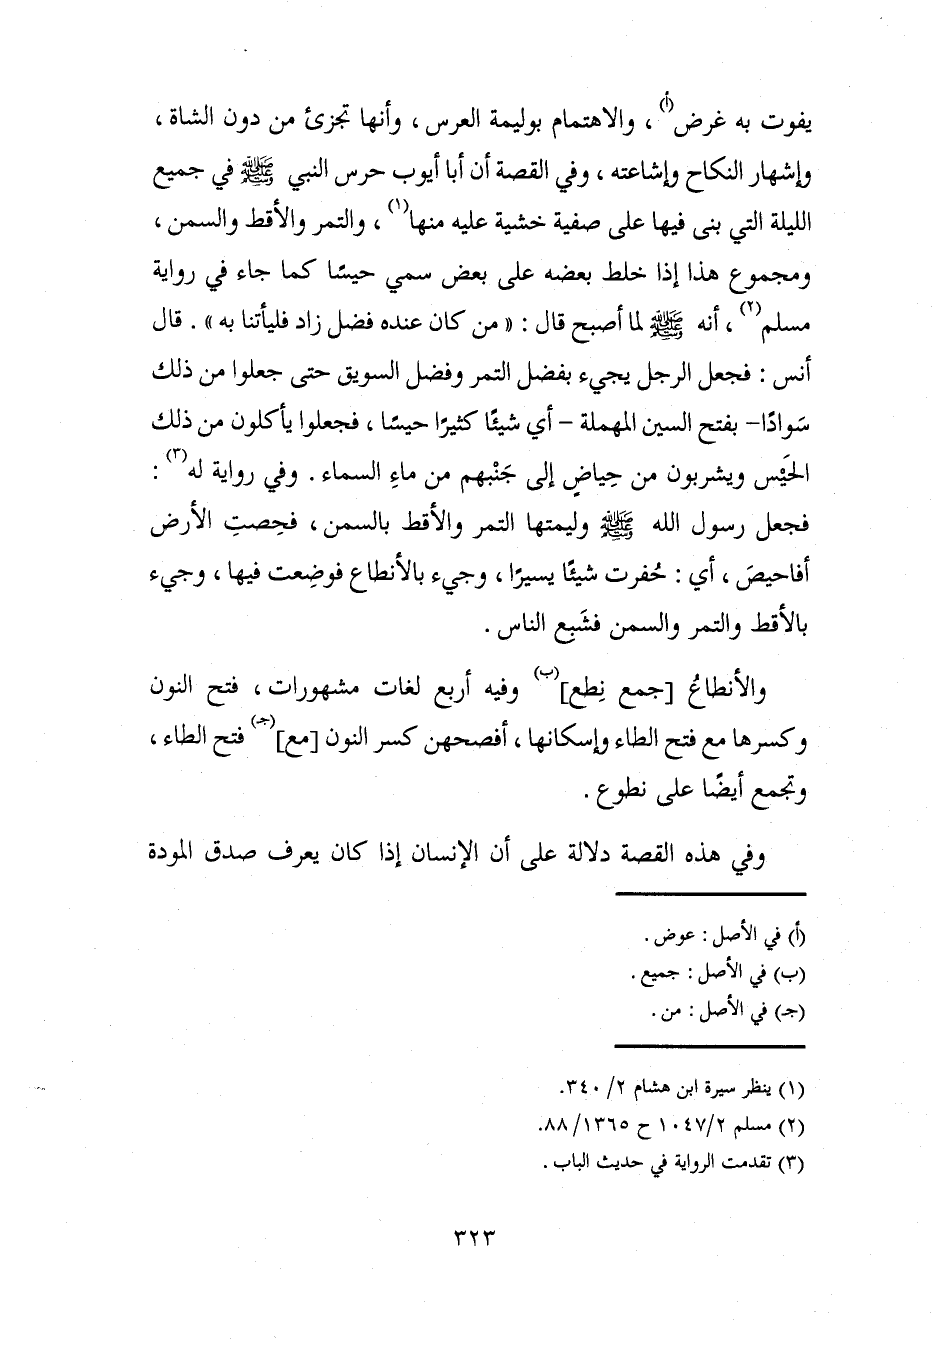 يفوت به غرض(أ)، والاهتمام بوليمة العرس، وأنها تجزئ من دون الشاة،
وإشهار النكاح وإشاعته، وفي القصة أن أبا أيوب حرس النبي ﷺ في جميع
الليلة التي بنى فيها على صفية خشية عليه منها(١)، والتمر والأقط والسمن،
ومجموع هذا إذا خلط بعضه على بعض سمي حيسًا كما جاء في رواية
مسلم(٢)، أنه ﷺ لما أصبح قال: «من كان عنده فضل زاد فليأتنا به». قال
أنس: فجعل الرجل يجيء بفضل التمر وفضل السويق حتى جعلوا من ذلك
سَوادًا- بفتح السين المهملة - أي شيئًا كثيرًا حيسًا، فجعلوا يأكلون من ذلك
الحَيْس ويشربون من حِياضٍ إلى جَنْبهم من ماءِ السماء. وفي رواية له(٣):
فجعل رسول الله ﷺ وليمتها التمر والأقط بالسمن، فحِصتِ الأرض
أفاحيصَ، أي: حُفرت شيئًا يسيرًا، وجيء بالأنطاع فوضِعت فيها، وجيء
بالأقط والتمر والسمن فشَبِع الناس.
والأنطاعُ [جمع نِطع](ب) وفيه أربع لغات مشهورات، فتح النون
وكسرها مع فتح الطاء وإسكانها، أفصحهن كسر النون [مع](جـ) فتح الطاء،
وتجمع أيضًا على نطوع.
وفي هذه القصة دلالة على أن الإنسان إذا كان يعرف صدق المودة
(أ) في الأصل: عوض.
(ب) في الأصل: جميع.
(جـ) في الأصل: من.
(١) ينظر سيرة ابن هشام ٢/ ٣٤٠.
(٢) مسلم ١٠٤٧/٢ ح ١٣٦٥/ ٨٨.
(٣) تقدمت الرواية في حديث الباب.
٣٢٣